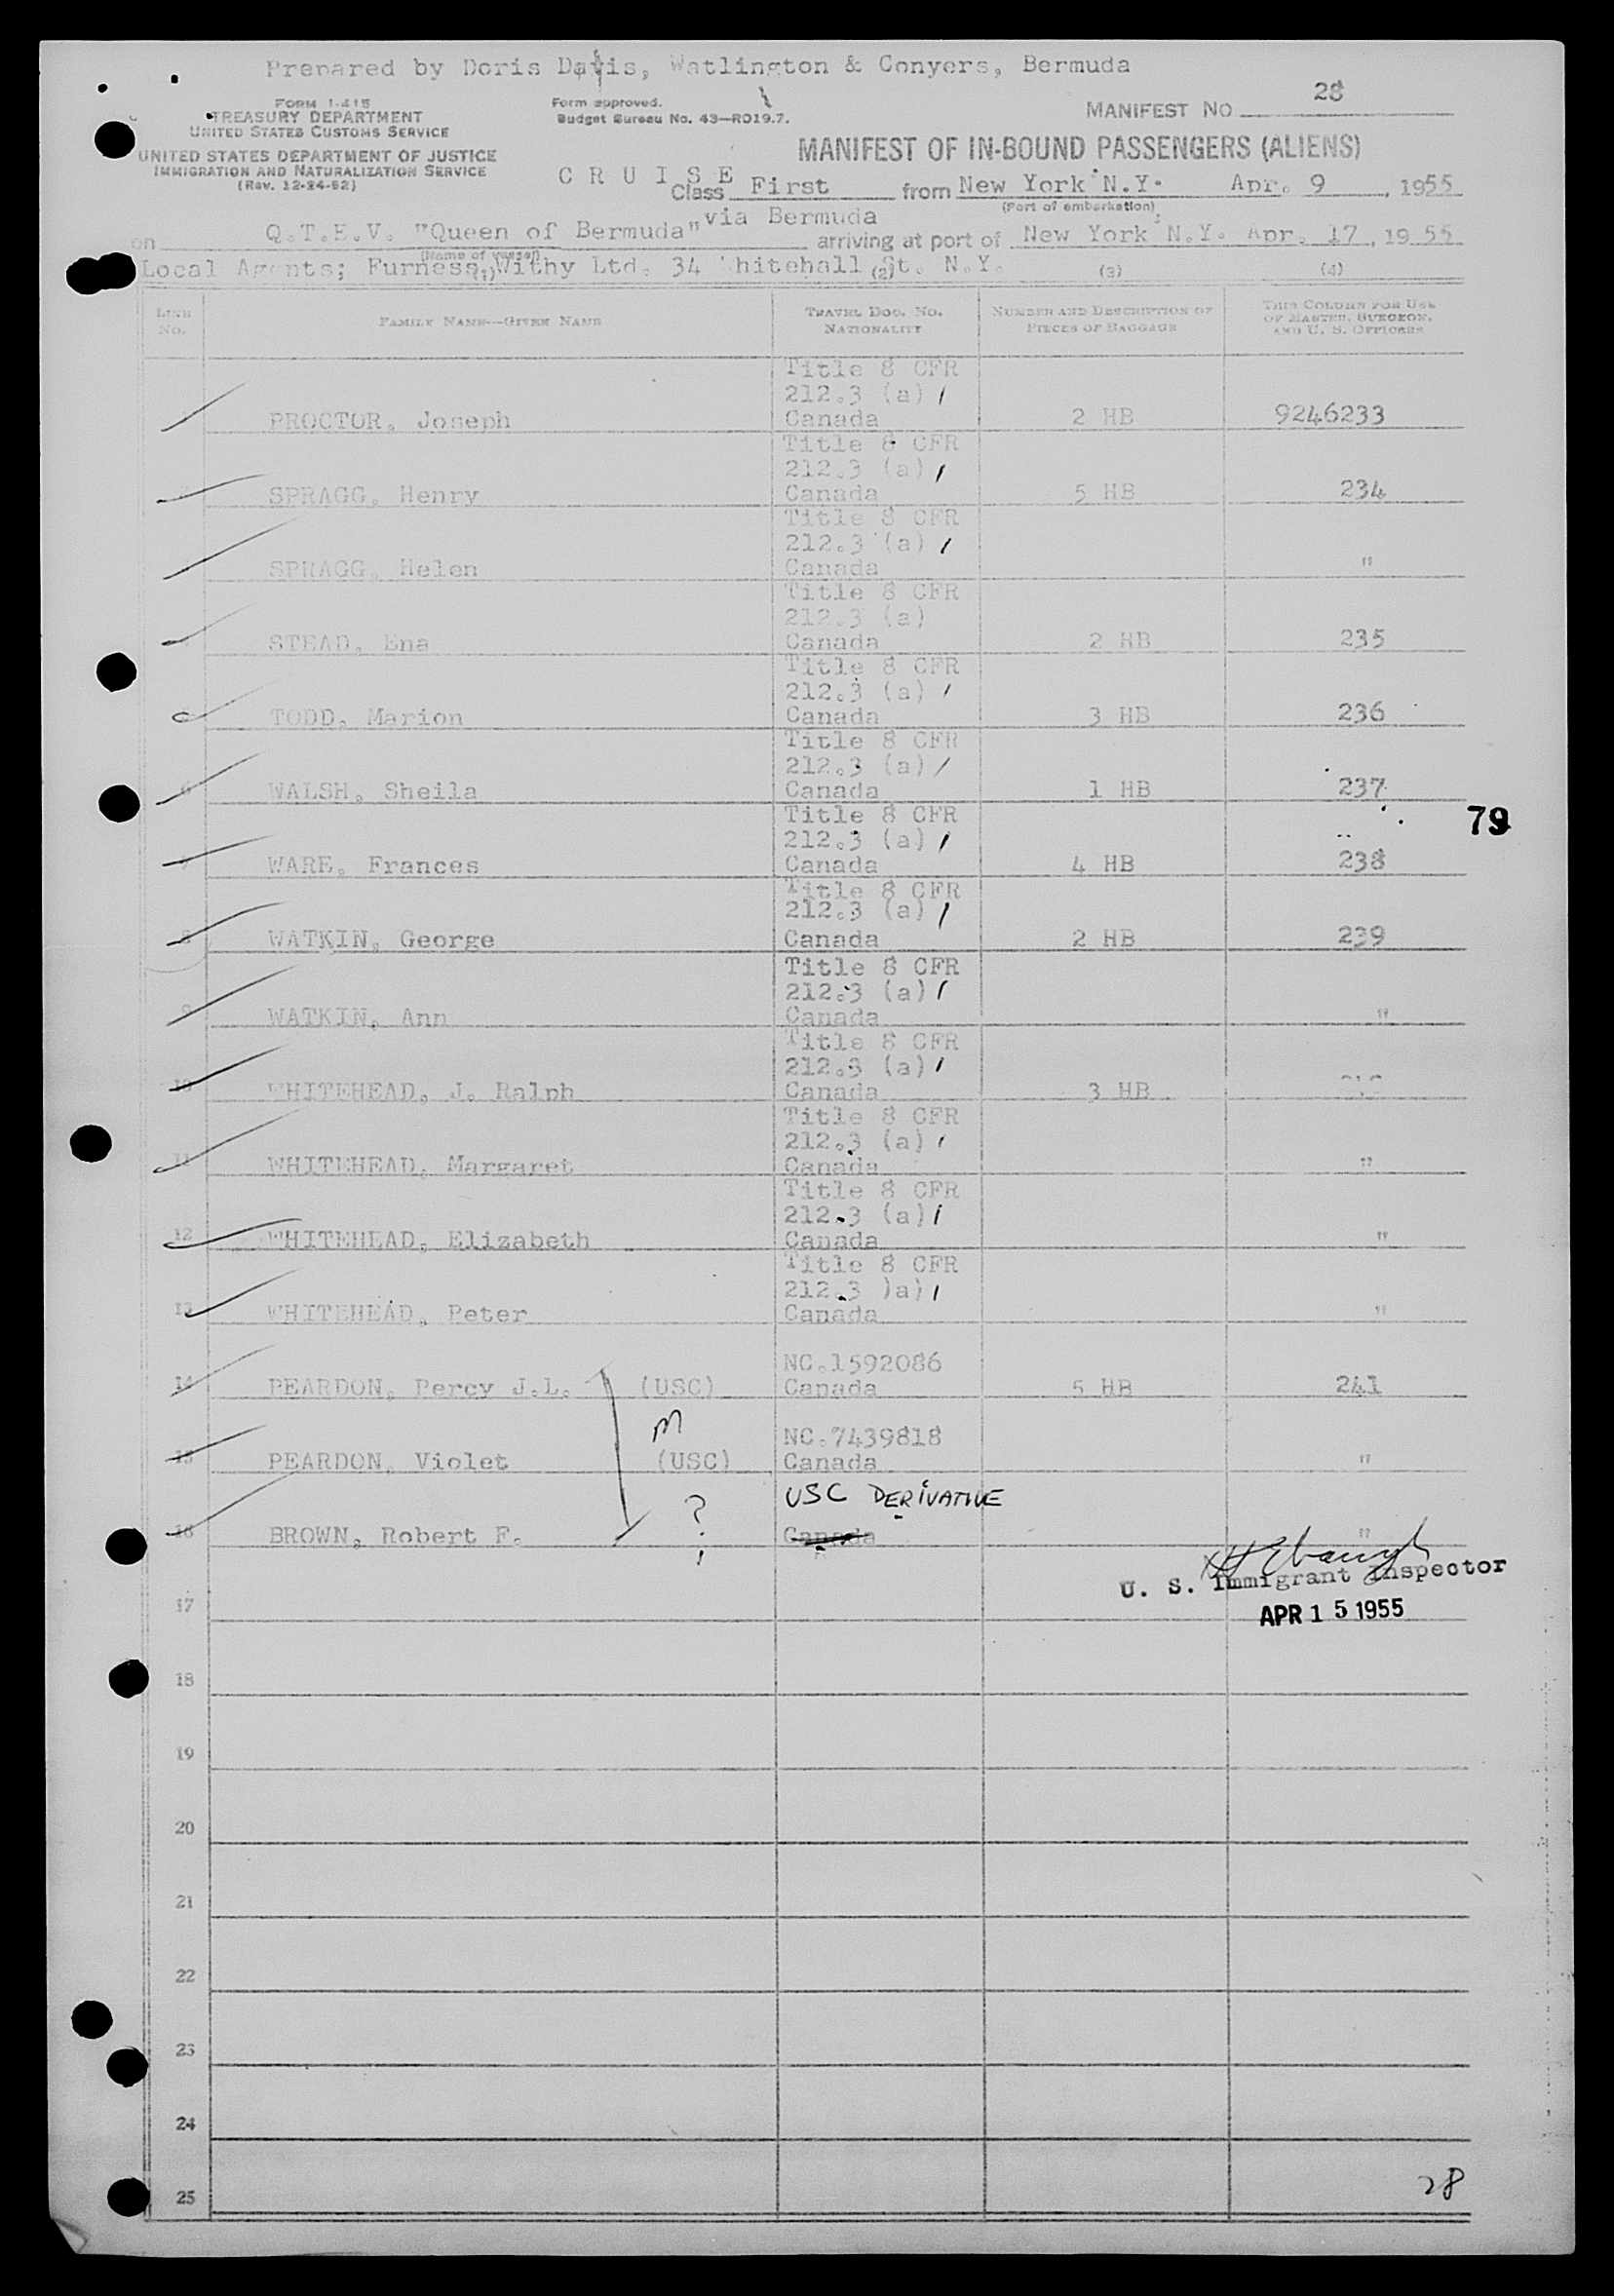 Prepared by Doris Davis, Watlington & Conyers, Bermuda
FORM I-418
TREASURY DEPARTMENT
UNITED STATES CUSTOMS SERVICE
UNITED STATES DEPARTMENT OF JUSTICE
IMMIGRATION AND NATURALIZATION SERVICE
(Rev. 12-24-52)
Form approved.
Budget Bureau No. 43—RO19.7.
MANIFEST NO 28
MANIFEST OF IN-BOUND PASSENGERS (ALIENS)
CRUISE
Class First from New York N.Y. Apr. 9, 1955
(Port of embarkation)
via Bermuda
on Q.T.E.V. "Queen of Bermuda" arriving at port of New York N.Y. Apr. 17, 1955
(Name of vessel)
Local Agents; Furness Withy Ltd. 34 Whitehall St. N.Y.
(1) (2) (3) (4)
LINE NO.
FAMILY NAME—GIVEN NAME
TRAVEL DOC. NO. NATIONALITY
NUMBER AND DESCRIPTION OF PIECES OF BAGGAGE
THIS COLUMN FOR USE OF MASTER, SURGEON, AND U. S. OFFICERS
Title 8 CFR
212.3 (a)
PROCTOR, Joseph Canada 2 HB 9246233
Title 8 CFR
212.3 (a)
SPRAGG, Henry Canada 5 HB 234
Title 8 CFR
212.3 (a)
SPRAGG, Helen Canada "
Title 8 CFR
212.3 (a)
STEAD, Ena Canada 2 HB 235
Title 8 CFR
212.3 (a)
TODD, Marion Canada 3 HB 236
Title 8 CFR
212.3 (a)
6 WALSH, Sheila Canada 1 HB 237
Title 8 CFR
79
212.3 (a)
7 WARE, Frances Canada 4 HB 238
Title 8 CFR
212.3 (a)
8 WATKIN, George Canada 2 HB 239
Title 8 CFR
212.3 (a)
9 WATKIN, Ann Canada "
Title 8 CFR
212.3 (a)
10 WHITEHEAD, J. Ralph Canada 3 HB
Title 8 CFR
212.3 (a)
11 WHITEHEAD, Margaret Canada "
Title 8 CFR
212.3 (a)
12 WHITEHEAD, Elizabeth Canada "
Title 8 CFR
212.3 )a)
13 WHITEHEAD, Peter Canada "
NC.1592086
14 PEARDON, Percy J.L. (USC) Canada 5 HB 241
M
NC.7439818
15 PEARDON, Violet (USC) Canada "
USC DERIVATIVE
16 BROWN, Robert F. ? Canada "
U. S. Immigrant Inspector
APR 15 1955
17
18
19
20
21
22
23
24
25
28